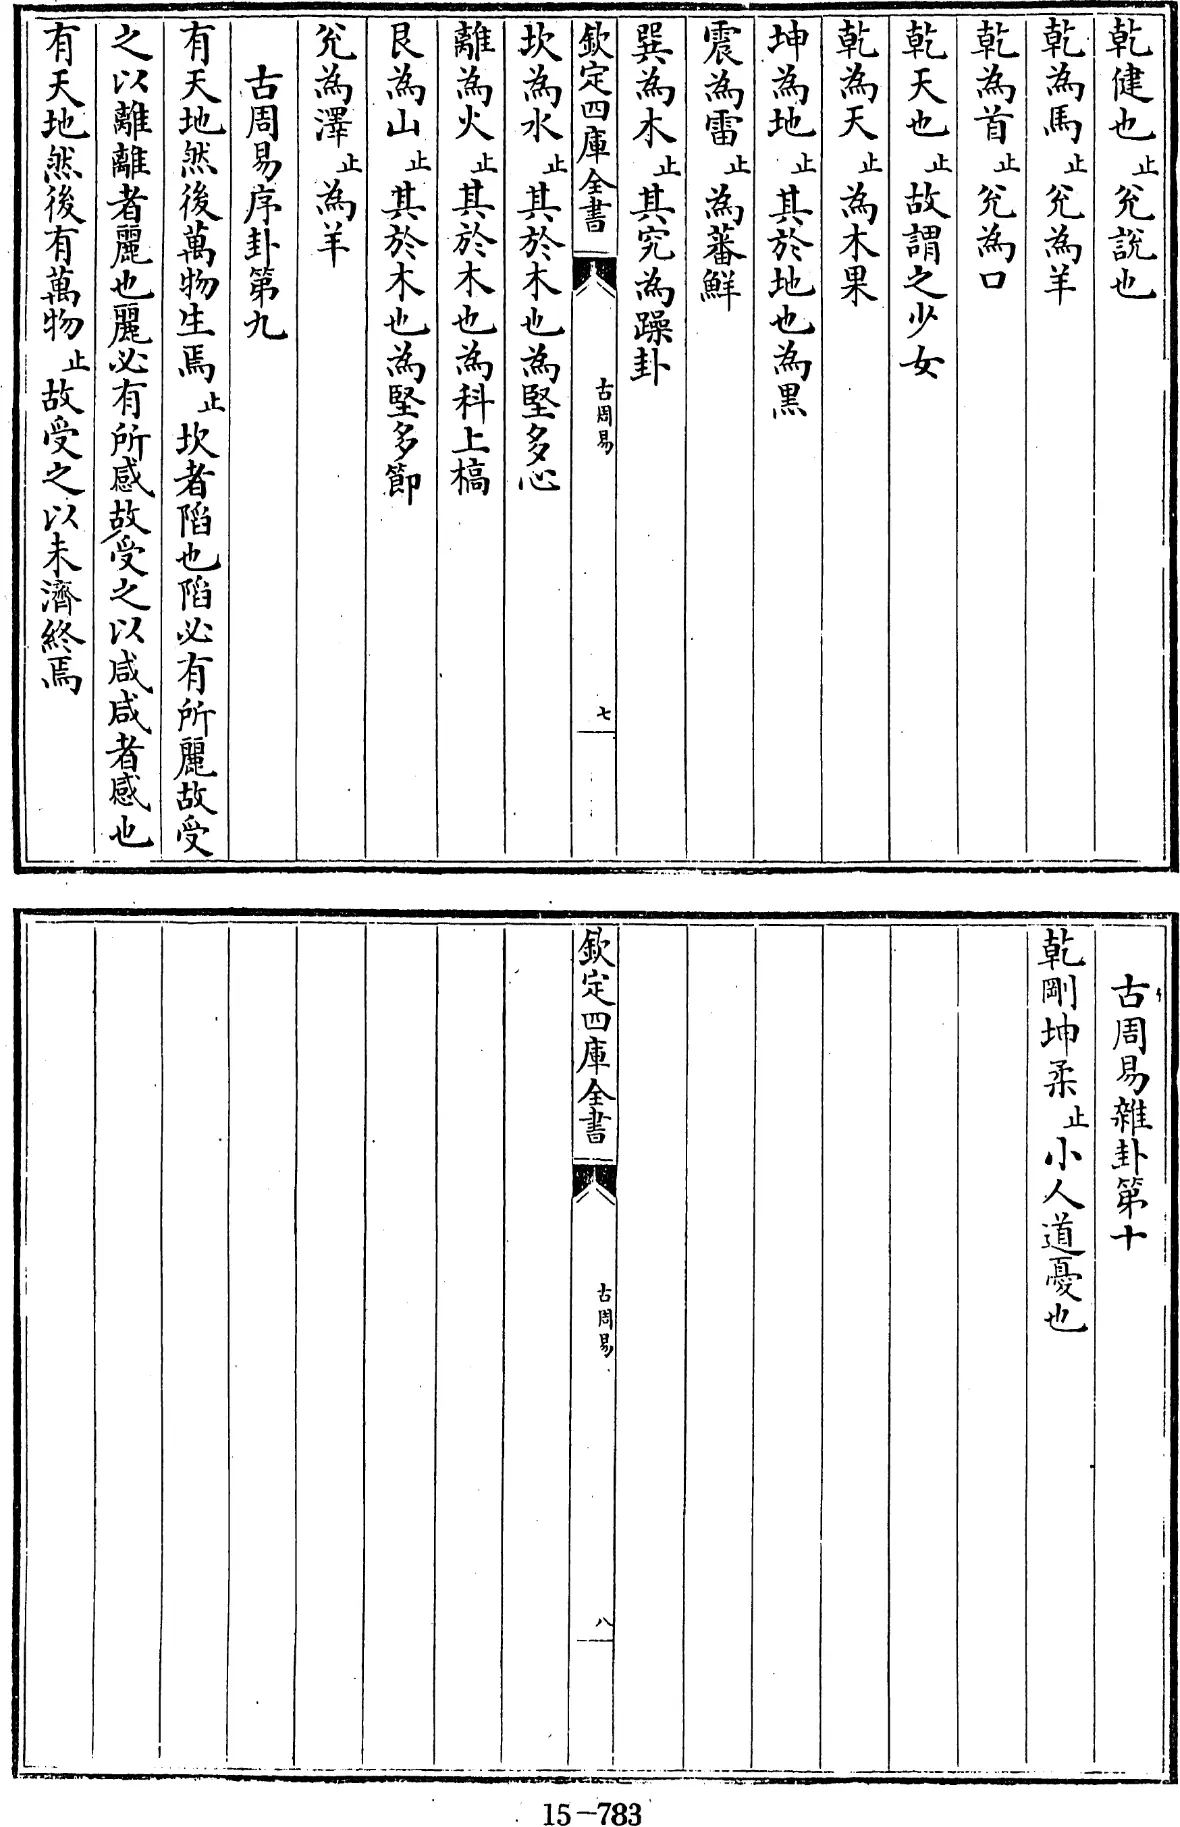 乾健也止兊說也
乾為馬止兊為羊
乾為首止兊為口
乾天也止故謂之少女
乾為天止為木果
坤為地止其於地也為黒
震為雷止為蕃鮮
巽為木止其究為躁卦
欽定四庫全書
古周易
七
坎為水止其於木也為堅多心
離為火止其於木也為科上槁
艮為山止其於木也為堅多節
兊為澤止為羊
古周易序卦第九
有天地然後萬物生焉止坎者陷也陷必有所麗故受
之以離離者麗也麗必有所感故受之以咸咸者感也
有天地然後有萬物止故受之以未濟終焉
古周易雜卦第十
乾剛坤柔止小人道憂也
欽定四庫全書
古周易
八
15-783